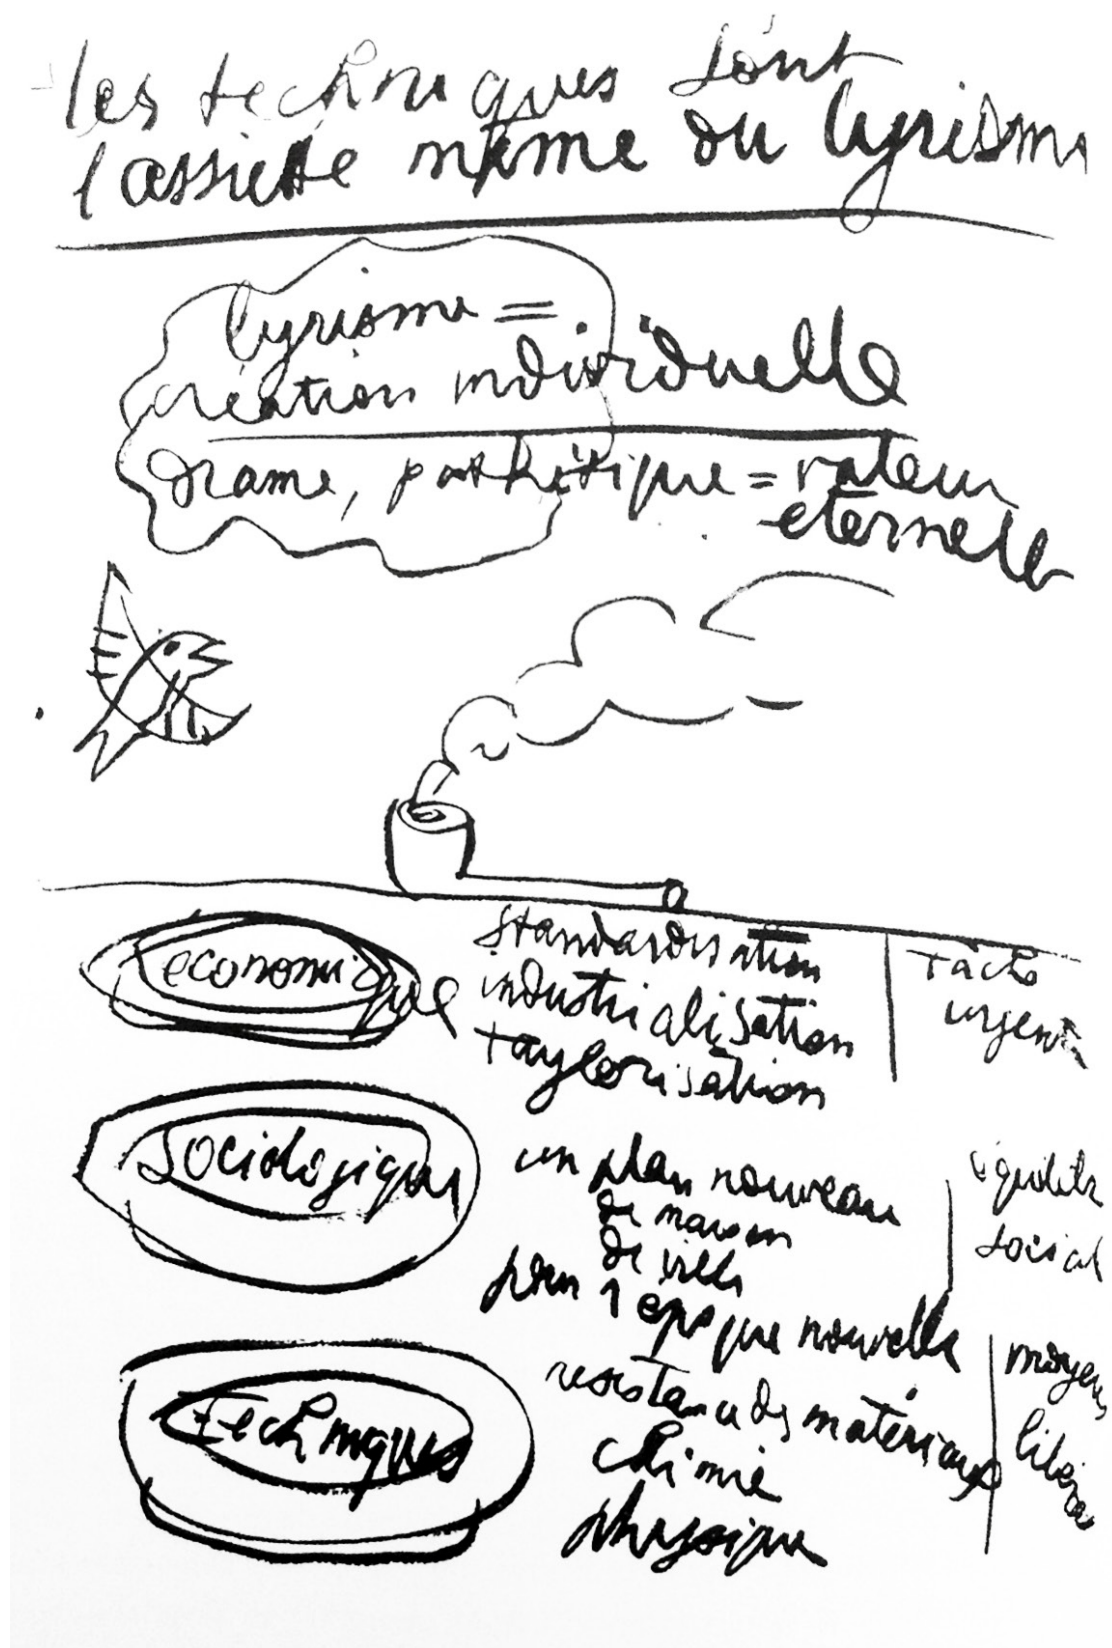 les techniques sont
l'assiette même du lyrisme
lyrisme =
création individuelle
drame, pathétique = valeur
éternelle
economique
standardisation
industrialisation
taylorisation
tache
urgente
sociologique
un plan nouveau
de maison
de ville
pour l'epoque nouvelle
équilibre
social
techniques
resistance des matériaux
chimie
physique
moyens